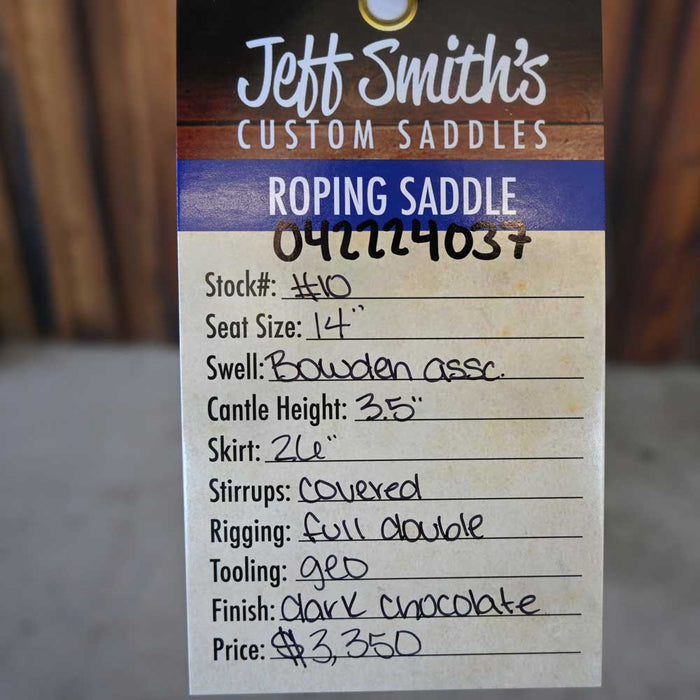 Jeff Smith's
CUSTOM SADDLES
ROPING SADDLE
042224037
Stock#: #10
Seat Size: 14"
Swell: Bowden assc.
Cantle Height: 3.5"
Skirt: 26"
Stirrups: covered
Rigging: full double
Tooling: geo
Finish: dark chocolate
Price: $3,350